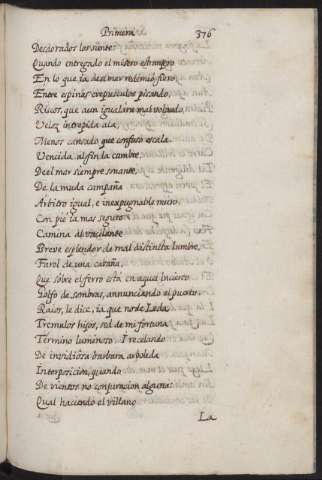 Primera 376
Desdorados los siente:
Quando entregado el misero estrangero
En lo que ia del mar redimió fiero
Entre espinas crepusculos pisando,
Riscos, que aun igualara mal volando
Veloz intrepida ala,
Menos cansado que confuso escala.
Vencida al fin la cumbre
Del mar siempre sonante,
De la muda campaña
Arbitro igual, e inexpugnable muro,
Con pie ia mas seguro
Camina al vacilante
Breve esplendor de mal distinta lumbre,
Farol de una cabaña,
Que sobre el ferro está en aquel incierto
Golfo de sombras, annunciando el puerto.
Raios, les dice, ia que no de Leda
Tremulos hijos, sed de mi fortuna
Termino luminoso. I recelando
De invidiosa barbara arboleda
Interposicion, quando
De vientos no conjuracion alguna:
Qual haciendo el villano
La